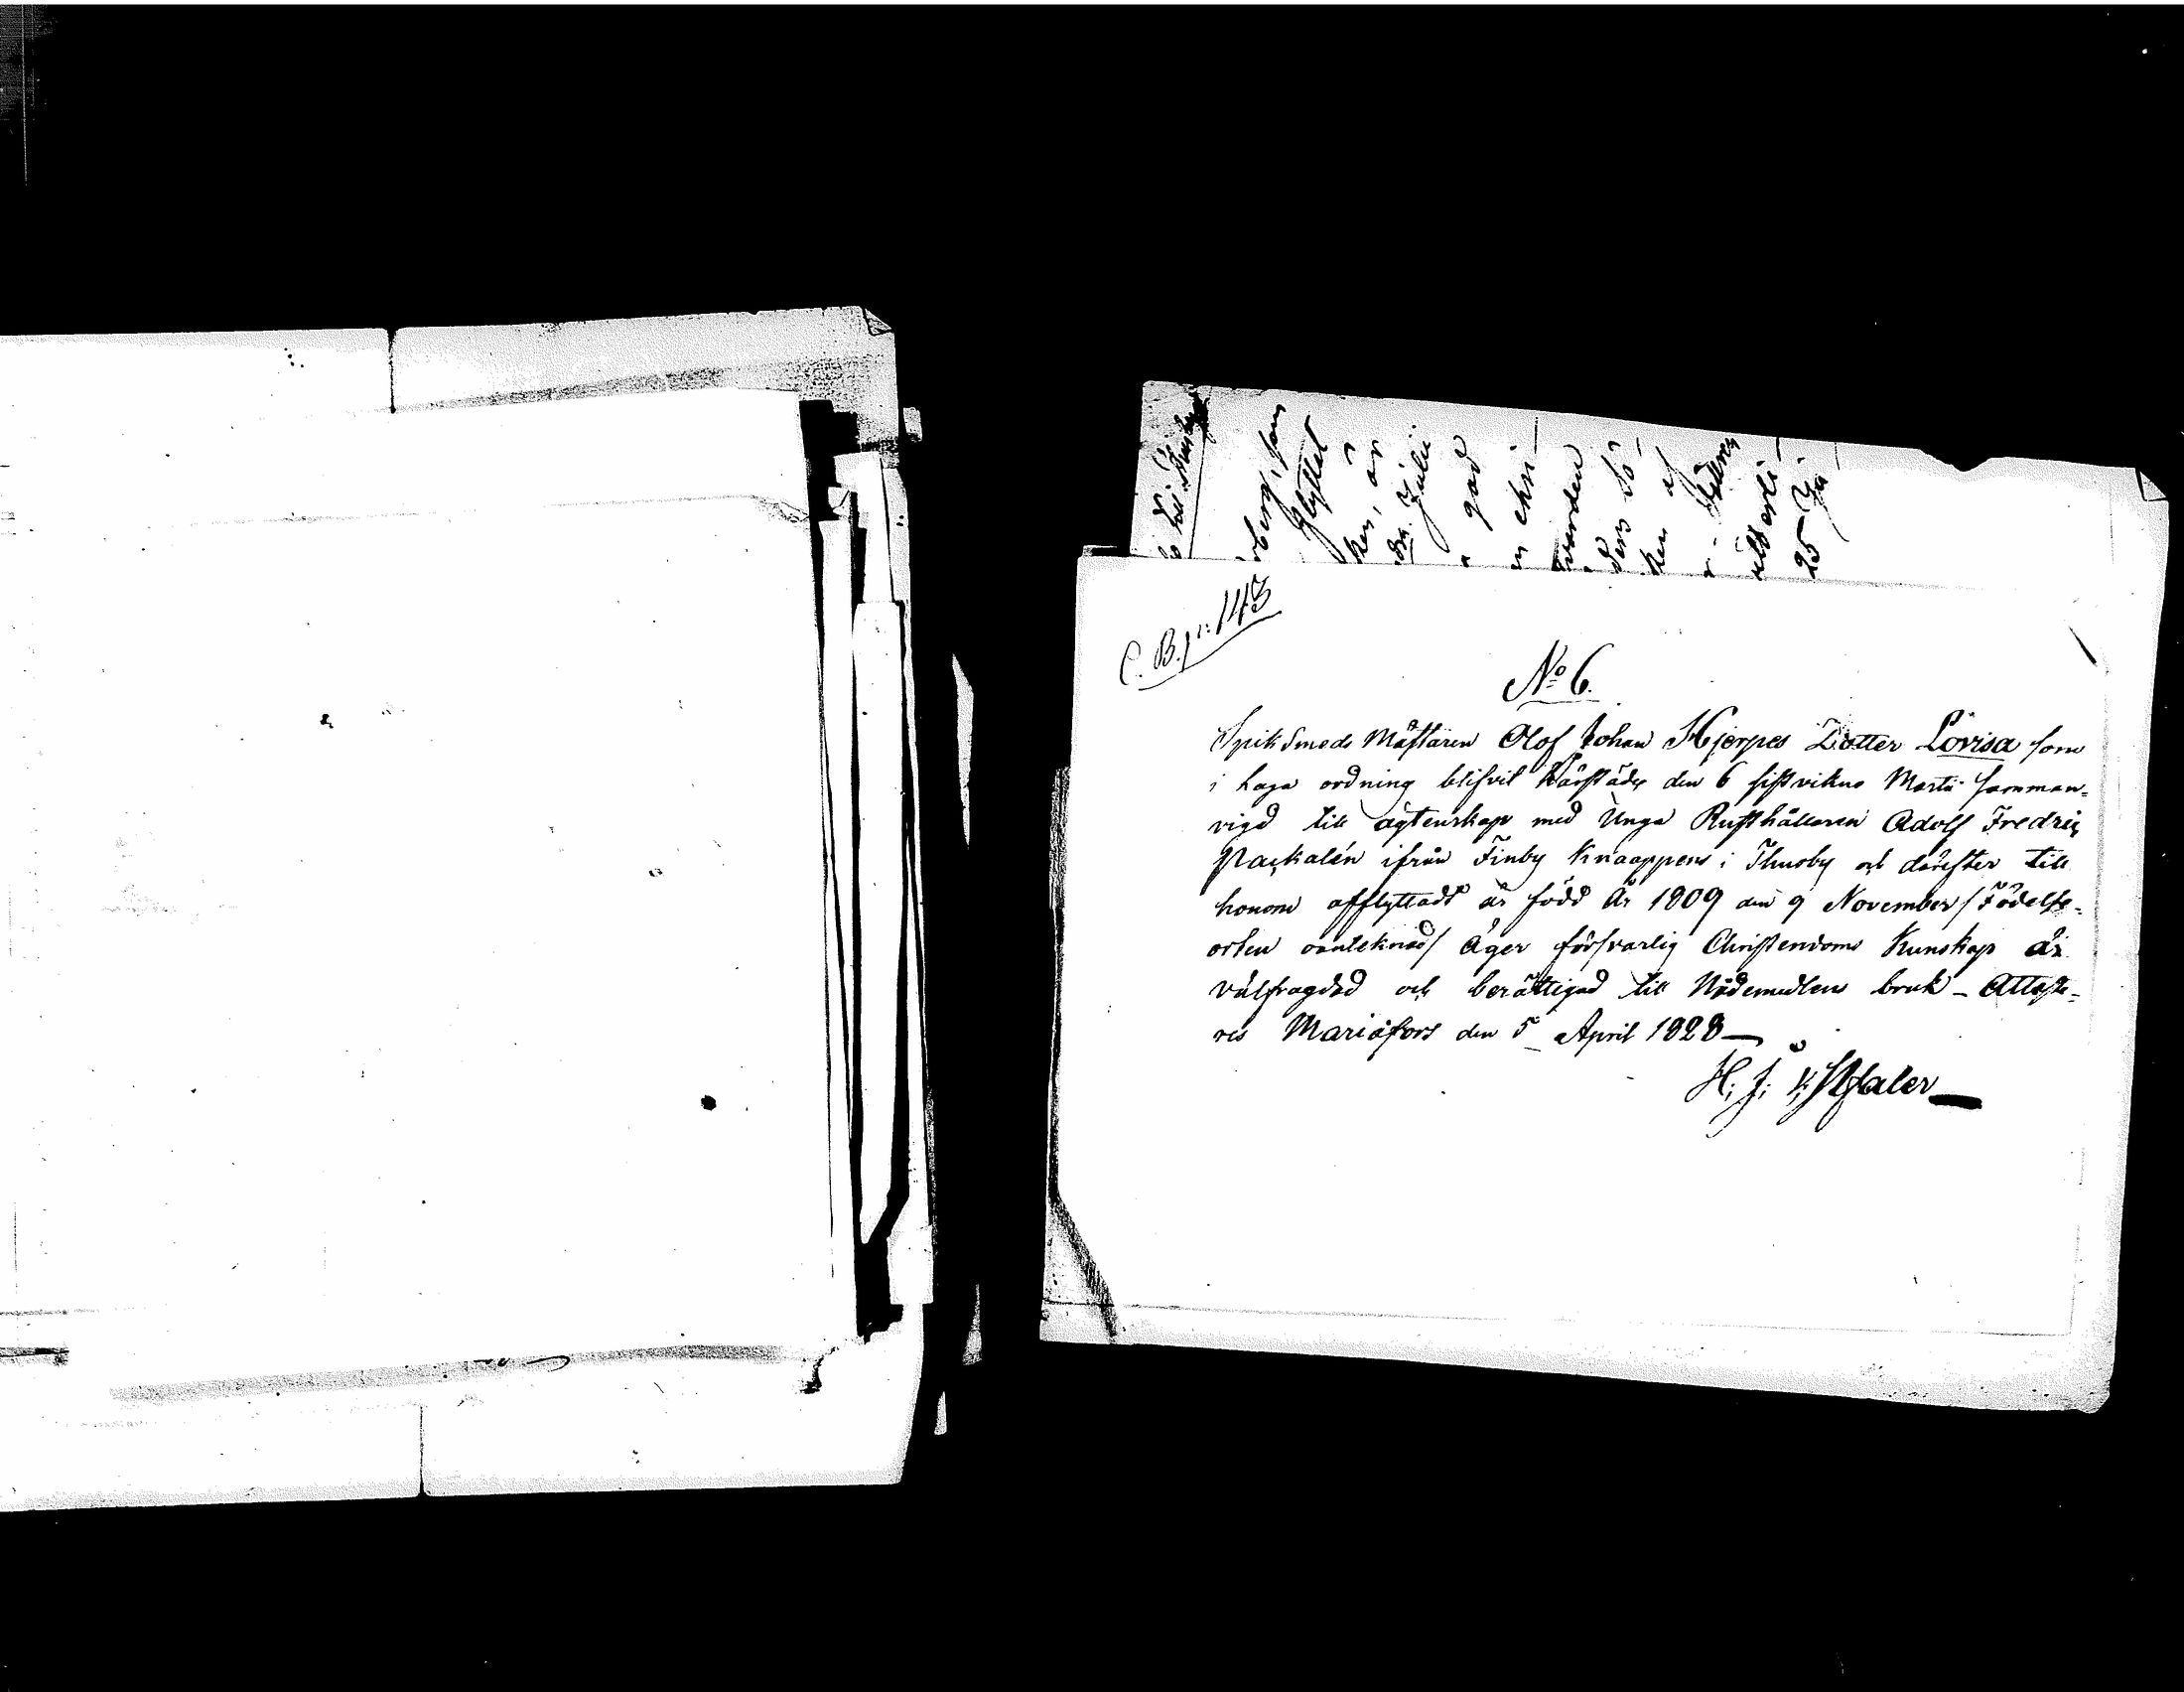 C. B. p: 143
No 6.
Spik Smeds Mästaren Olof Johan Hjerpes Dotter Lovisa som
i laga ordning blifvit härstädes den 6 sistvikne Martii samman-
vigd till ägtenskap med Unga Rusthållaren Adolf Fredric
Packalén ifrån Finby Knaappens i Thusby och därefter till
honom afflyttadt är född År 1809 den 9 November / Födelse-
orten oanteknad / Äger försvarlig Christendoms Kunskap är
välfrägdad och berättigad till Nådemedlens bruk - Atteste-
res Mariæfors den 5 April 1828
flyttet
Julii
25